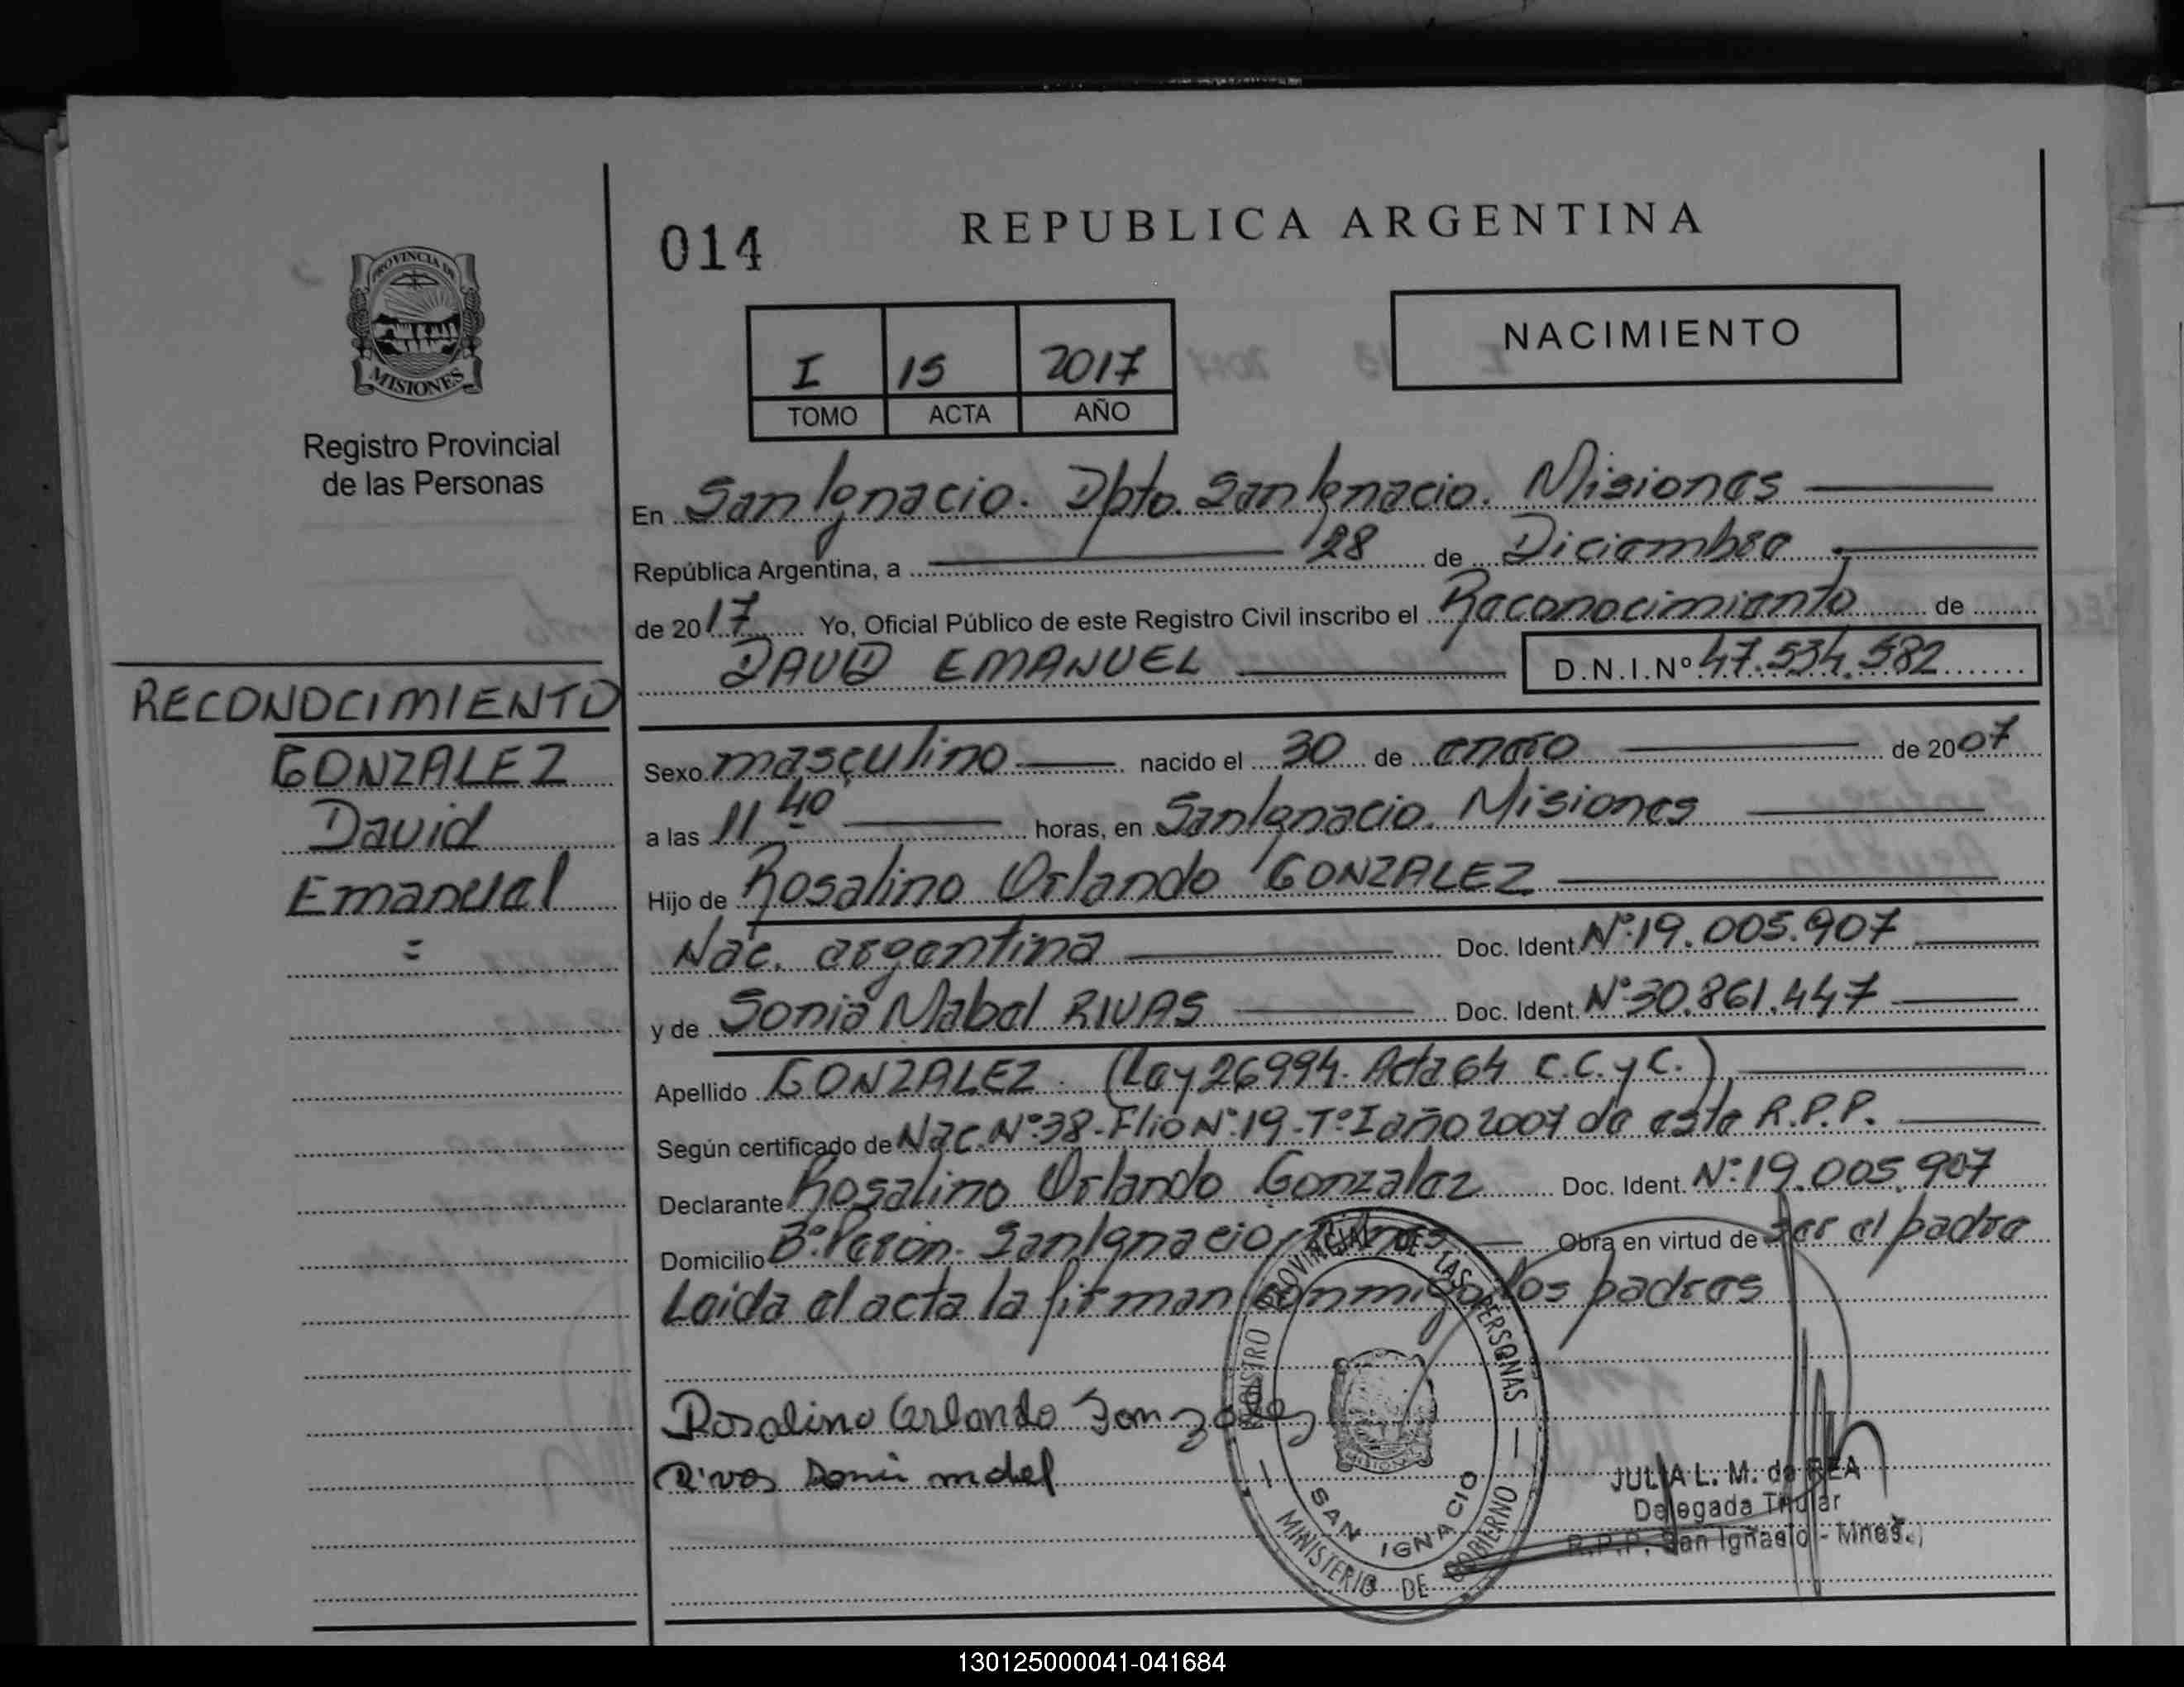 014
REPUBLICA ARGENTINA
PROVINCIA DE
MISIONES
Registro Provincial
de las Personas
I 15 2017
TOMO ACTA AÑO
NACIMIENTO
En San Ignacio. Dpto. San Ignacio. Misiones
República Argentina, a 28 de Diciembre
de 2017 Yo, Oficial Público de este Registro Civil inscribo el Reconocimiento de
DAVID EMANUEL D.N.I.Nº 47.534.582
RECONOCIMIENTO
GONZALEZ
David
Emanuel
=
Sexo masculino nacido el 30 de enero de 2007
a las 11 40 horas, en San Ignacio. Misiones
Hijo de Rosalino Orlando GONZALEZ
Nac. argentina Doc. Ident. Nº 19.005.907
y de Sonia Mabel RIVAS Doc. Ident. Nº 30.861.447
Apellido GONZALEZ. (Ley 26994. Acta 64 C.C.y C.)
Según certificado de Nac. Nº 38-Flio Nº 19-Tº I año 2007 de este R.P.P.
Declarante Rosalino Orlando Gonzalez Doc. Ident. Nº 19.005.907
Domicilio Bº Perón. San Ignacio, Mnes Obra en virtud de ser el padre
Leida el acta la firman conmigo los padres
Rosalino Orlando Gonzalez
Rivas
REGISTRO PROVINCIAL DE LAS PERSONAS
SAN IGNACIO
MINISTERIO DE GOBIERNO
JULIA L. M. de REA
Delegada Titular
R.P.P. San Ignacio - Mnes.
130125000041-041684